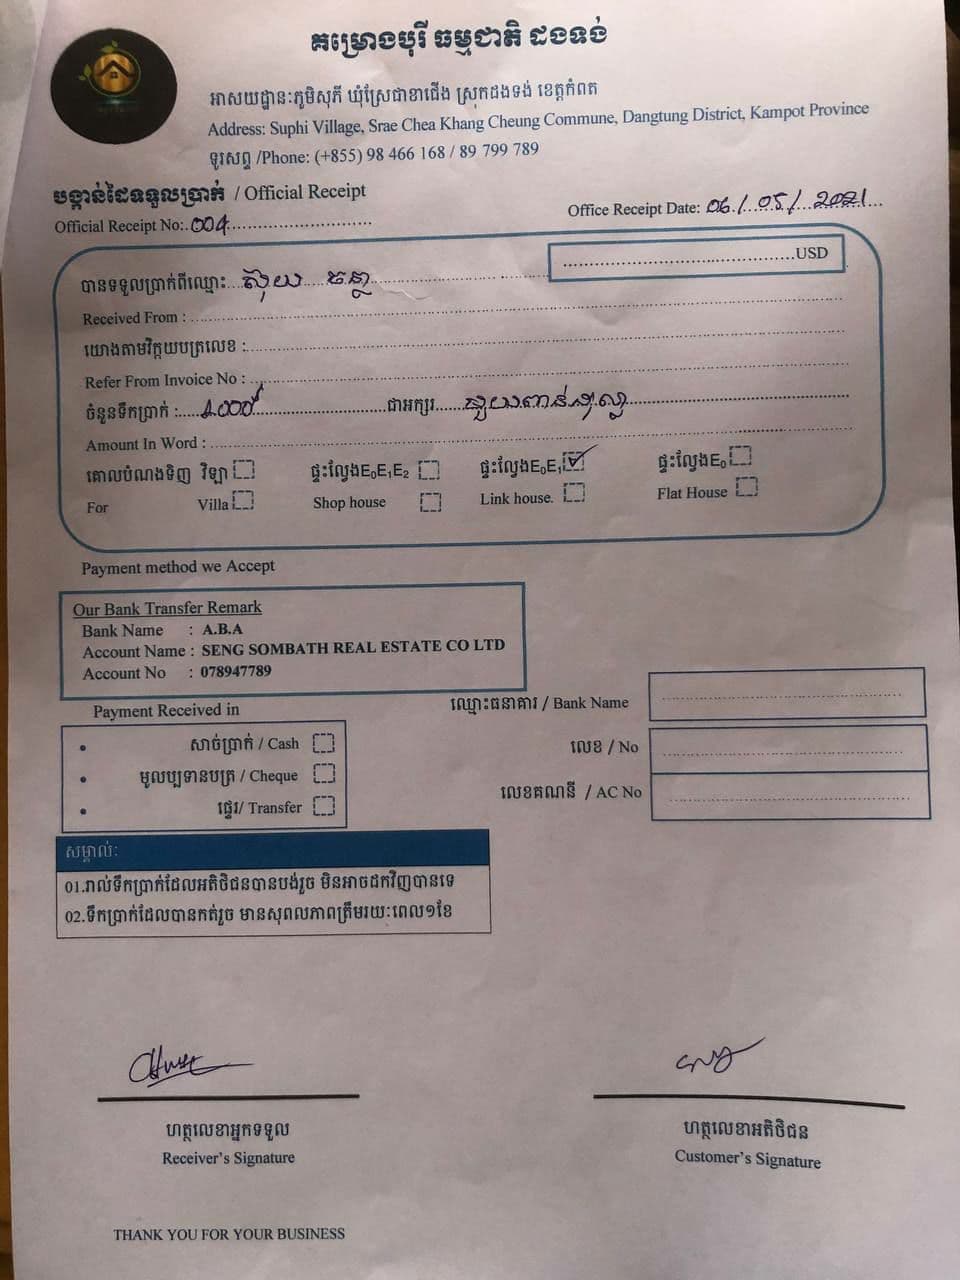 គម្រោងបុរី ធម្មជាតិ ដងទង់
អាសយដ្ឋានៈភូមិសុភី ឃុំស្រែជាខាជើង ស្រុកដងទង់ ខេត្តកំពត
Address: Suphi Village, Srae Chea Khang Cheung Commune, Dangtung District, Kampot Province
ទូរសព្ទ /Phone: (+855) 98 466 168 / 89 799 789
បង្កាន់ដៃទទួលប្រាក់ / Official Receipt
Office Receipt Date: 06/05/2021
Official Receipt No: 004
USD
បានទទួលប្រាក់ពីឈ្មោះ ស៊ុយ ចន្ថា
Received From :
យោងតាមវិក្កយបត្រលេខ :
Refer From Invoice No :
ចំនួនទឹកប្រាក់ : ជាអក្សរ
Amount In Word :
គោលបំណងទិញ វិឡា ផ្ទះល្វែងE₀E₁E₂ ផ្ទះល្វែងE₀E₁ ផ្ទះល្វែងE₀
For Villa Shop house Link house. Flat House
Payment method we Accept
Our Bank Transfer Remark
Bank Name : A.B.A
Account Name : SENG SOMBATH REAL ESTATE CO LTD
Account No : 078947789
Payment Received in
ឈ្មោះធនាគារ / Bank Name
• សាច់ប្រាក់ / Cash
លេខ / No
• មូលប្បទានបត្រ / Cheque
លេខគណនី / AC No
• ផ្ទេរ/ Transfer
សម្គាល់ៈ
01.រាល់ទឹកប្រាក់ដែលអតិថិជនបានបង់រួច មិនអាចដកវិញបានទេ
02.ទឹកប្រាក់ដែលបានកត់រួច មានសុពលភាពត្រឹមរយៈពេល១ខែ
ហត្ថលេខាអ្នកទទួល
Receiver's Signature
ហត្ថលេខាអតិថិជន
Customer's Signature
THANK YOU FOR YOUR BUSINESS